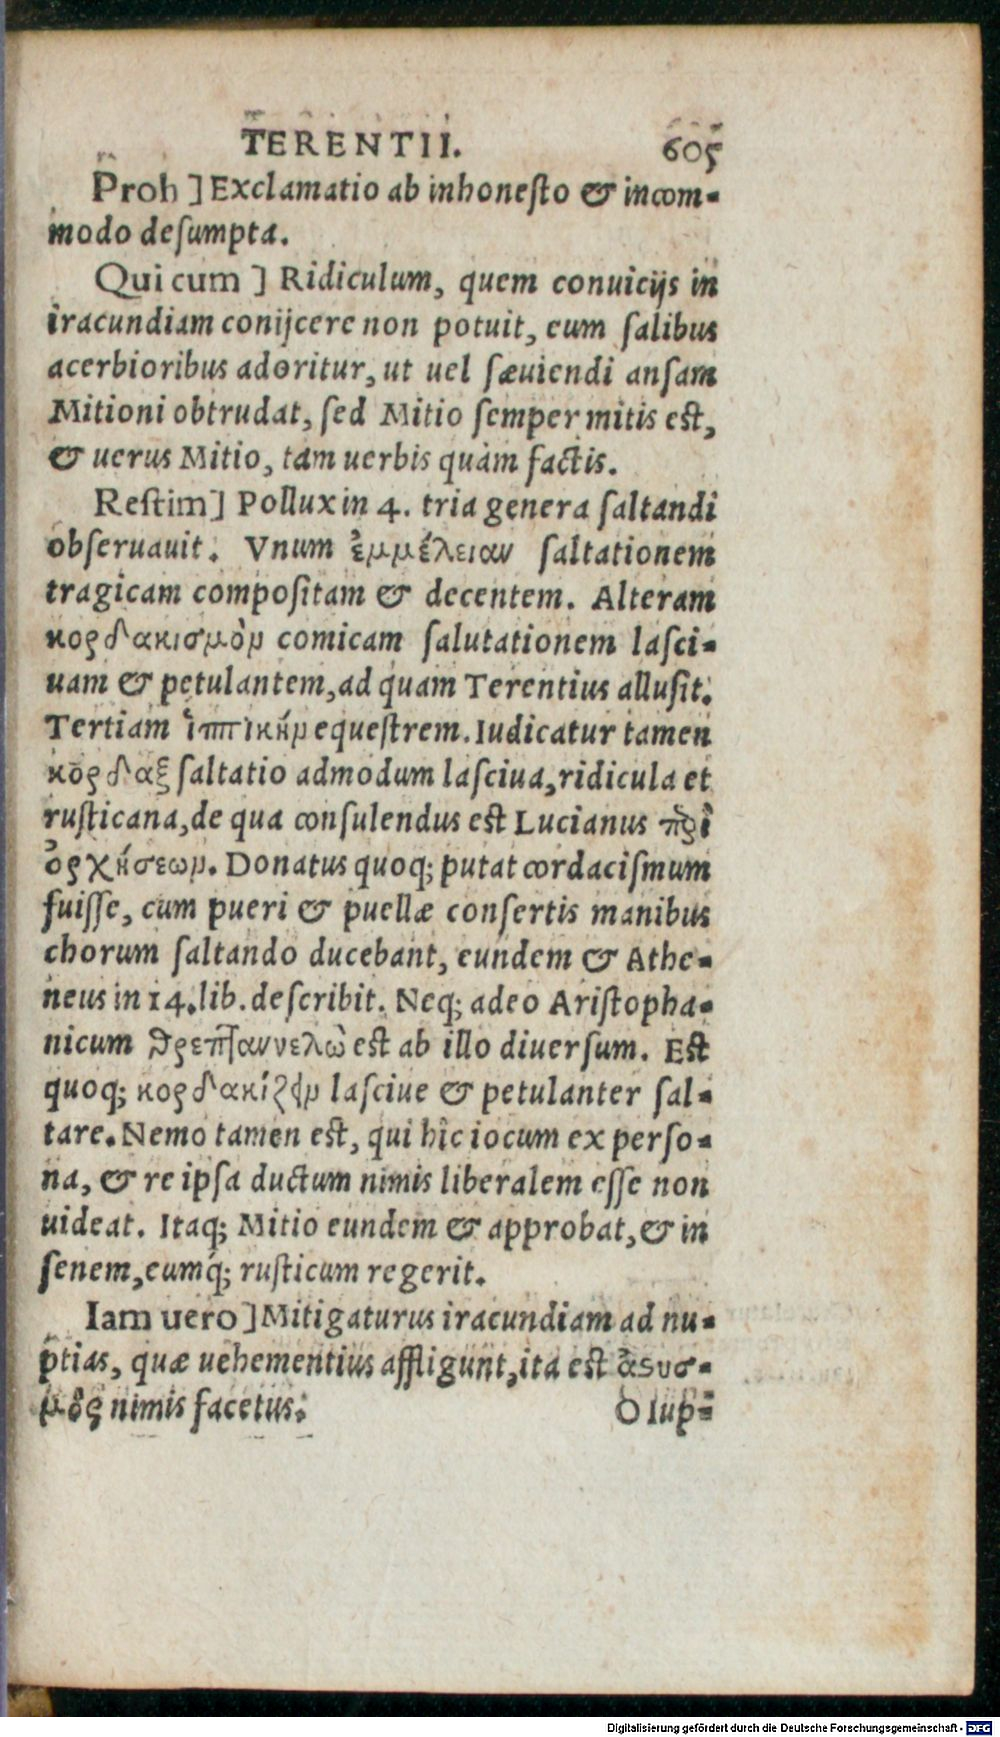 TERENTII. 605
Proh ] Exclamatio ab inhonesto & incom-
modo desumpta.
Qui cum ] Ridiculum, quem conuicijs in
iracundiam conijcere non potuit, eum salibus
acerbioribus adoritur, ut uel sæuiendi ansam
Mitioni obtrudat, sed Mitio semper mitis est,
& uerus Mitio, tam uerbis quàm factis.
Restim] Pollux in 4. tria genera saltandi
obseruauit. Vnum ἐμμέλειαν saltationem
tragicam compositam & decentem. Alteram
κορδακισμὸν comicam salutationem lasci-
uam & petulantem, ad quam Terentius allusit.
Tertiam ἱππικὴν equestrem. Iudicatur tamen
κόρδαξ saltatio admodum lasciua, ridicula et
rusticana, de qua consulendus est Lucianus περὶ
ὀρχήσεων. Donatus quoq; putat cordacismum
fuisse, cum pueri & puellæ consertis manibus
chorum saltando ducebant, eundem & Athe-
neus in 14. lib. describit. Neq; adeo Aristopha-
nicum est ab illo diuersum. Est
quoq; κορδακίζειν lasciue & petulanter sal-
tare. Nemo tamen est, qui hîc iocum ex perso-
na, & re ipsa ductum nimis liberalem esse non
uideat. Itaq; Mitio eundem & approbat, & in
senem, eumq́; rusticum regerit.
Iam uero ] Mitigaturus iracundiam ad nu-
ptias, quæ uehementius affligunt, ita est ἀστυσ-
μὸς nimis facetus.
O Iup-
Digitalisierung gefördert durch die Deutsche Forschungsgemeinschaft - DFG